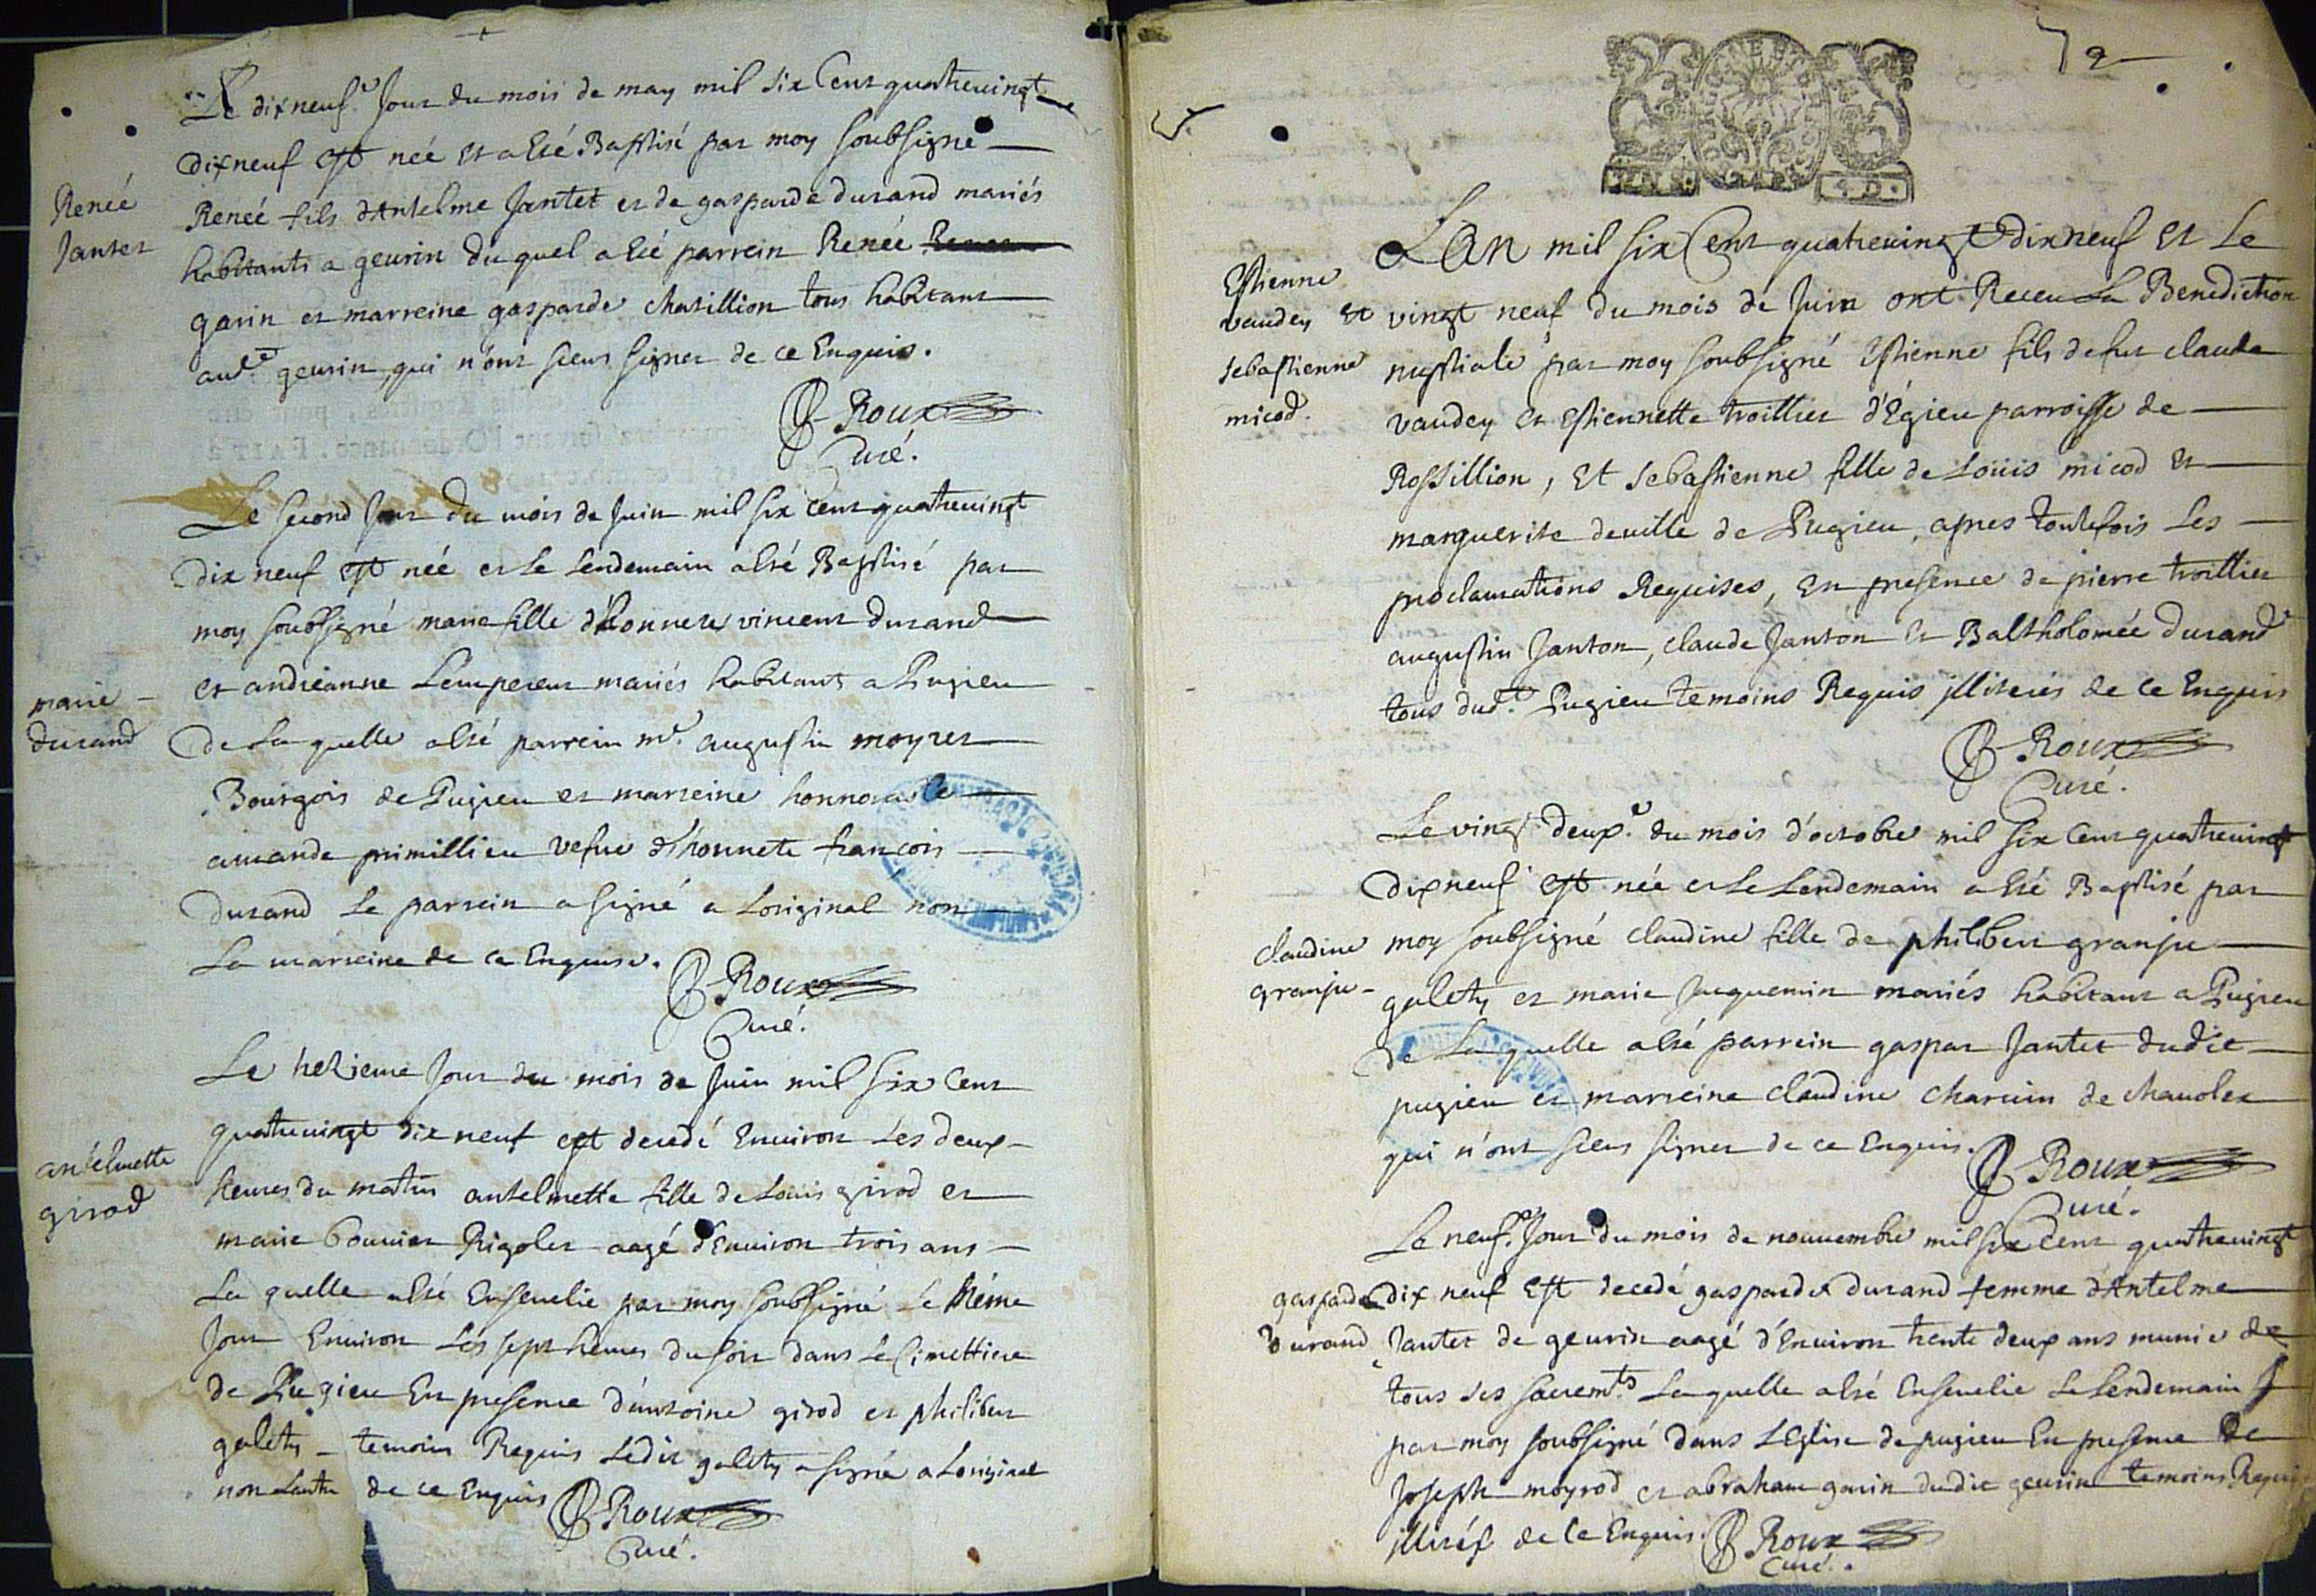 Renée
Jantet
Le dixneuf.e Jour du mois de may mil six Cent quatrevingt
dixneuf est née et a Esté Baptisé par moy soubsigné
Renée fils d'Antelme Jantet et de gasparde durand mariés
habitants a geurin du quel a Esté parrein Renée
garin et marreine gasparde chatillion tous habitant
aud.t geurin, qui n'ont sceus signer de ce Enquis.
Roux
Curé.
marie
durand
Le second Jour du mois de Juin mil six cent quatrevingt
dix neuf est née et Le Lendemain a Esté Baptisé par
moy soubsigné marie fille d'honnete vincent durand
et andréanne Lempereur mariés habitants a Pugieu
de La quelle a Esté parrein m.e augustin moyret
Bourgois de Pugieu et marreine honnorable
amande primillieu vefve d'honnete francois
durand Le parrein a signé a Loriginal non
La marreine de ce Enquise.
Roux
Curé.
antelmette
girod
Le trezieme Jour du mois de Juin mil six Cent
quatrevingt dix neuf est decedé Environ Les deux
heures du matin antelmette fille de Louis girod et
marie bouvier Rigolet aagé d'Environ trois ans
La quelle a Esté Ensevelie par moy soubsigné Le Méme
Jour Environ Les sept heures du soir dans Le Cimettiere
de Pugieu En presence d'antoine girod et philibert
galety temoins Requis Ledit galety a signé a Loriginal
non Lautre de ce Enquis
Roux
Curé.
2
Estienne
vaudey et
sebastienne
micod.
LAn mil six Cent quatrevingt dixneuf et Le
vingt neuf du mois de Juin ont Receu La Benediction
nuptiale par moy soubsigné Estienne fils de fut claude
vaudey et Estiennette troillier d'Égieu parroisse de
Rossillion, Et sebastienne fille de Loüis micod et
marguerite deville de Pugieu, apres toutefois Les
proclamations Requises, En presence de pierre troillier
augustin Janton, claude Janton et Baltholomée durand
tous dud.t Pugieu temoins Requis illiterés de ce Enquis
Roux
Curé.
Le vingt deux.e du mois d'octobre mil six Cent quatrevingt
dixneuf est née et Le Lendemain a Esté Baptisé par
claudine
granju
moy soubsigné claudine fille de philibert granju
galety et marie Jacquemin mariés habitant a Pugieu
de La quelle a Esté parrein gaspar Jantet dudit
pugieu et marreine claudine charvin de chavolet
qui n'ont sceus signer de ce Enquis.
Roux
Curé.
Le neuf.e Jour du mois de nouvembre mil six cent quatrevingt
gasparde
durand
dix neuf Est decedé gasparde durand femme d'Antelme
Jantet de geurin aagé d'Environ trente deux ans munie de
tous ses sacrem.ts La quelle a Esté Ensevelie Le Lendemain
par moy soubsigné dans LEglise de pugieu En presence de
Joseph moyrod et abraham garin dudit geurin temoins Requis
illitérés de ce Enquis.
Roux
Curé.